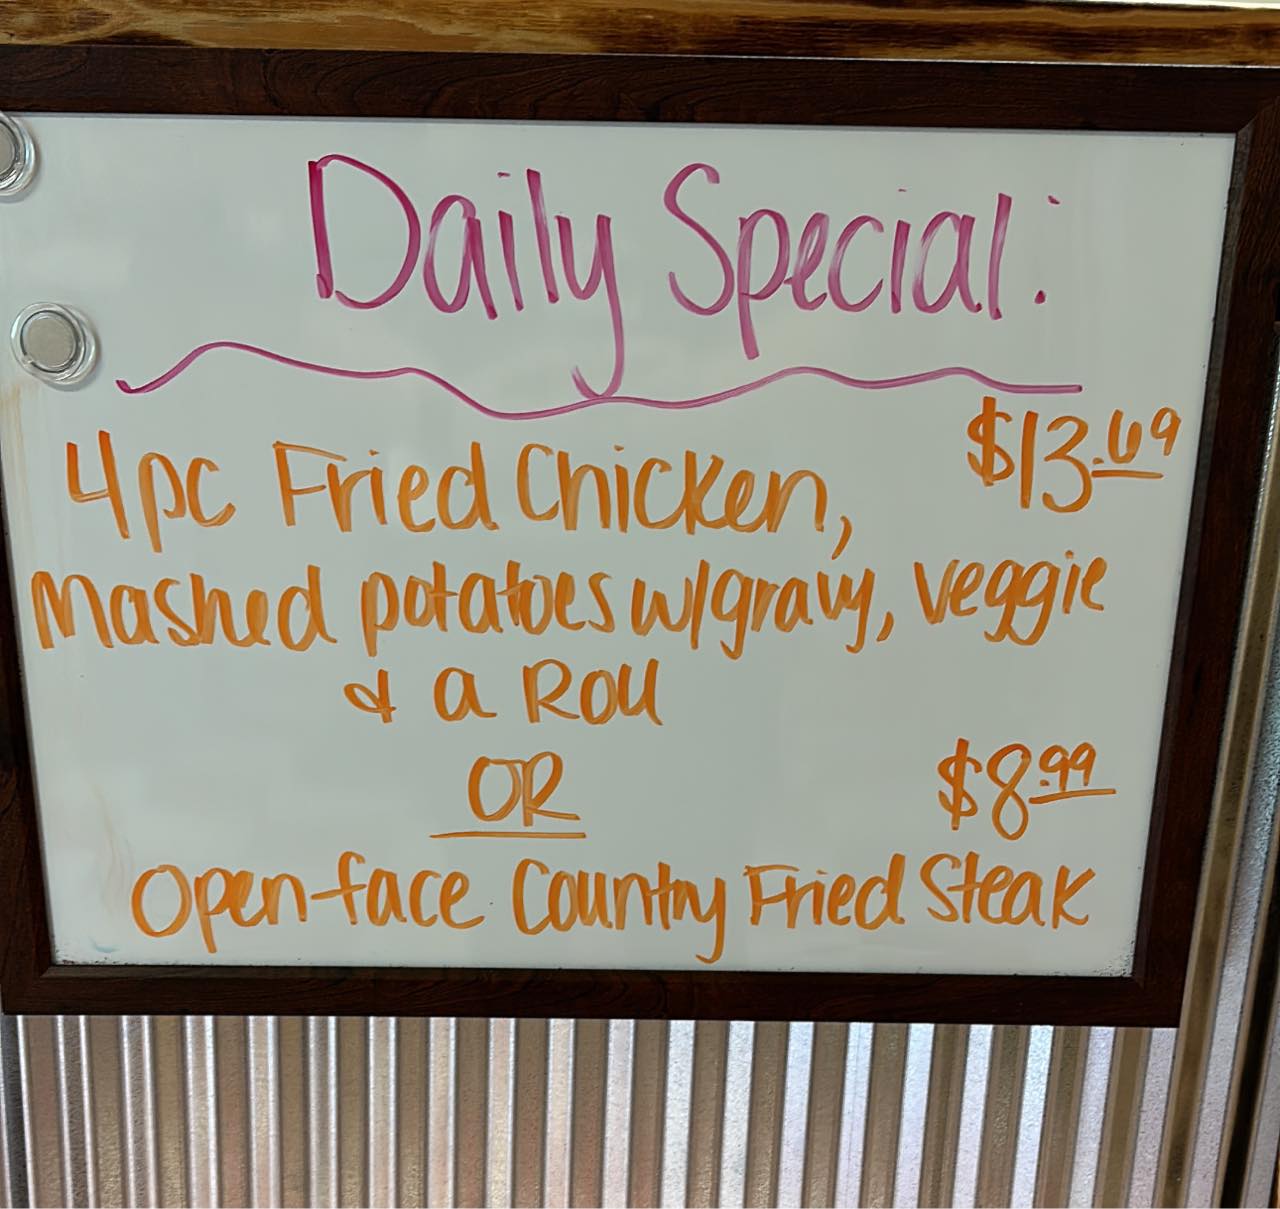 Daily Special:
$13.69
4pc Fried Chicken,
Mashed potatoes w/gravy, veggie
& a Roll
OR
$8.99
Open-face Country Fried Steak